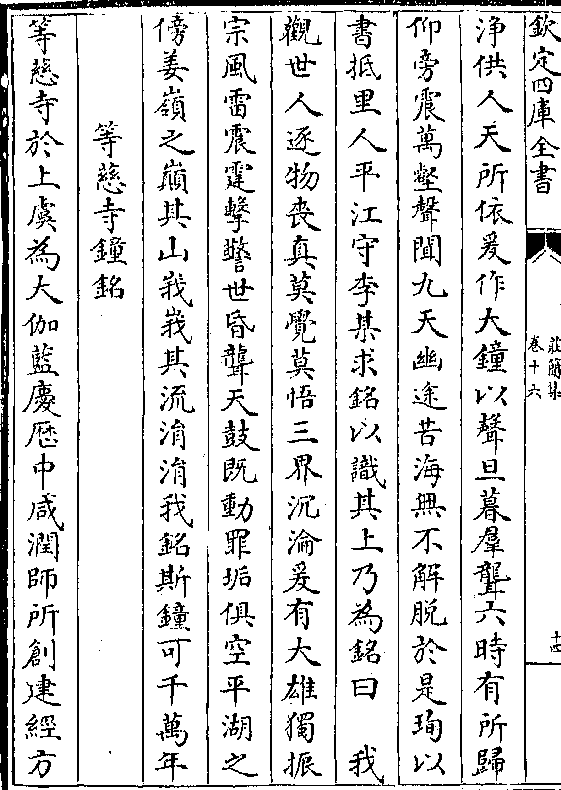 欽定四庫全書
莊簡集
卷十六
十四
淨供人天所依爰作大鐘以聲旦暮羣聾六時有所歸
仰旁震萬壑聲聞九天幽途苦海無不解脫於是珣以
書抵里人平江守李某求銘以識其上乃為銘曰　我
觀世人逐物喪真莫覺莫悟三界沉淪爰有大雄獨振
宗風雷震霆擊警世昏聾天鼓既動罪垢俱空平湖之
傍姜嶺之巔其山峩峩其流涓涓我銘斯鐘可千萬年
等慈寺鐘銘
等慈寺於上虞為大伽藍慶歴中咸潤師所創建經方